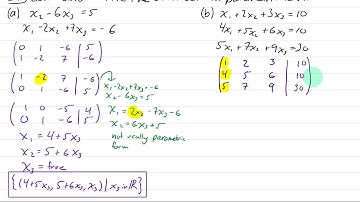 (a) x₂ - 6x₃ = 5
x₁ - 2x₂ + 7x₃ = -6
( 0 1 -6 | 5 )
( 1 -2 7 | -6 )
( 1 -2 7 | -6 )
( 0 1 -6 | 5 )
x₁ - 2x₂ + 7x₃ = -6
x₂ - 6x₃ = 5
( 1 0 -5 | 4 )
( 0 1 -6 | 5 )
x₁ = 2x₂ - 7x₃ - 6
x₂ = 6x₃ + 5
not really parametric
form
x₁ = 4 + 5x₃
x₂ = 5 + 6x₃
x₃ = free
{(4+5x₃, 5+6x₃, x₃) | x₃ in ℝ}
(b) x₁ + 2x₂ + 3x₃ = 10
4x₁ + 5x₂ + 6x₃ = 10
5x₁ + 7x₂ + 9x₃ = 30
( 1 2 3 | 10 )
( 4 5 6 | 10 )
( 5 7 9 | 30 )